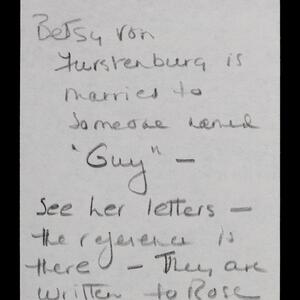 Betsy von
Furstenburg is
married to
someone named
"Guy" —
See her letters —
the reference is
there — They are
written to Rose